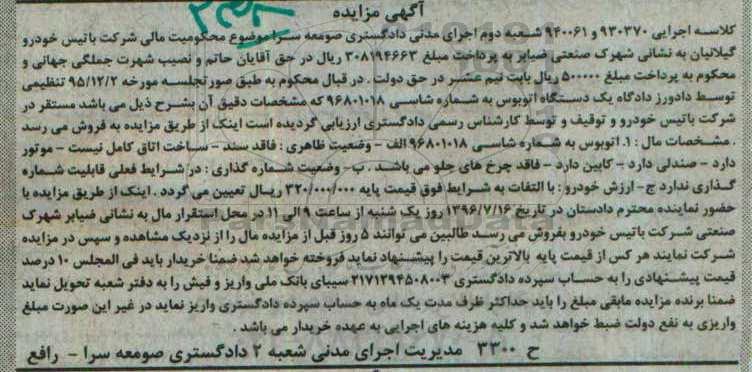 آگهی مزایده
کلاسه اجرایی ۹۳۰۳۷۰ و ۹۴۰۰۶۱ شعبه دوم اجرای مدنی دادگستری صومعه سرا موضوع محکومیت مالی شرکت باتیس خودرو
گیلانیان به نشانی شهرک صنعتی ضیابر به پرداخت مبلغ ۳۰۸۱۹۴۶۶۳ ریال در حق آقایان حاتم و نصیب شهرت جملگی جهانی و
محکوم به پرداخت مبلغ ۵۰۰۰۰۰ ریال بابت نیم عشر در حق دولت . در قبال محکوم به طبق صورتجلسه مورخه ۹۵/۱۲/۲ تنظیمی
توسط دادورز دادگاه یک دستگاه اتوبوس به شماره شاسی ۹۶۸۰۱۰۱۸ که مشخصات دقیق آن بشرح ذیل می باشد مستقر در
شرکت باتیس خودرو و توقیف و توسط کارشناس رسمی دادگستری ارزیابی گردیده است اینک از طریق مزایده به فروش می رسد
. مشخصات مال : ۱. اتوبوس به شماره شاسی ۹۶۸۰۱۰۱۸ الف - وضعیت ظاهری : فاقد سند - ساخت اتاق کامل نیست - موتور
دارد - صندلی دارد - کابین دارد - فاقد چرخ های جلو می باشد . ب- وضعیت شماره گذاری : در شرایط فعلی قابلیت شماره
گذاری ندارد ج- ارزش خودرو : با التفات به شرایط فوق قیمت پایه ۳۲۰/۰۰۰/۰۰۰ ریال تعیین می گردد . اینک از طریق مزایده با
حضور نماینده محترم دادستان در تاریخ ۱۳۹۶/۷/۱۶ روز یک شنبه از ساعت ۹ الی ۱۱ در محل استقرار مال به نشانی ضیابر شهرک
صنعتی شرکت باتیس خودرو بفروش می رسد طالبین می توانند ۵ روز قبل از مزایده مال را از نزدیک مشاهده و سپس در مزایده
شرکت نمایند هر کس از قیمت پایه بالاترین قیمت را پیشنهاد نماید فروخته خواهد شد ضمنا خریدار باید فی المجلس ۱۰ درصد
قیمت پیشنهادی را به حساب سپرده دادگستری ۲۱۷۱۲۹۴۵۰۸۰۰۳ سیبای بانک ملی واریز و فیش را به دفتر شعبه تحویل نماید
ضمنا برنده مزایده مابقی مبلغ را باید حداکثر ظرف مدت یک ماه به حساب سپرده دادگستری واریز نماید در غیر این صورت مبلغ
واریزی به نفع دولت ضبط خواهد شد و کلیه هزینه های اجرایی به عهده خریدار می باشد .
ح ۳۳۰۰ مدیریت اجرای مدنی شعبه ۲ دادگستری صومعه سرا - رافع